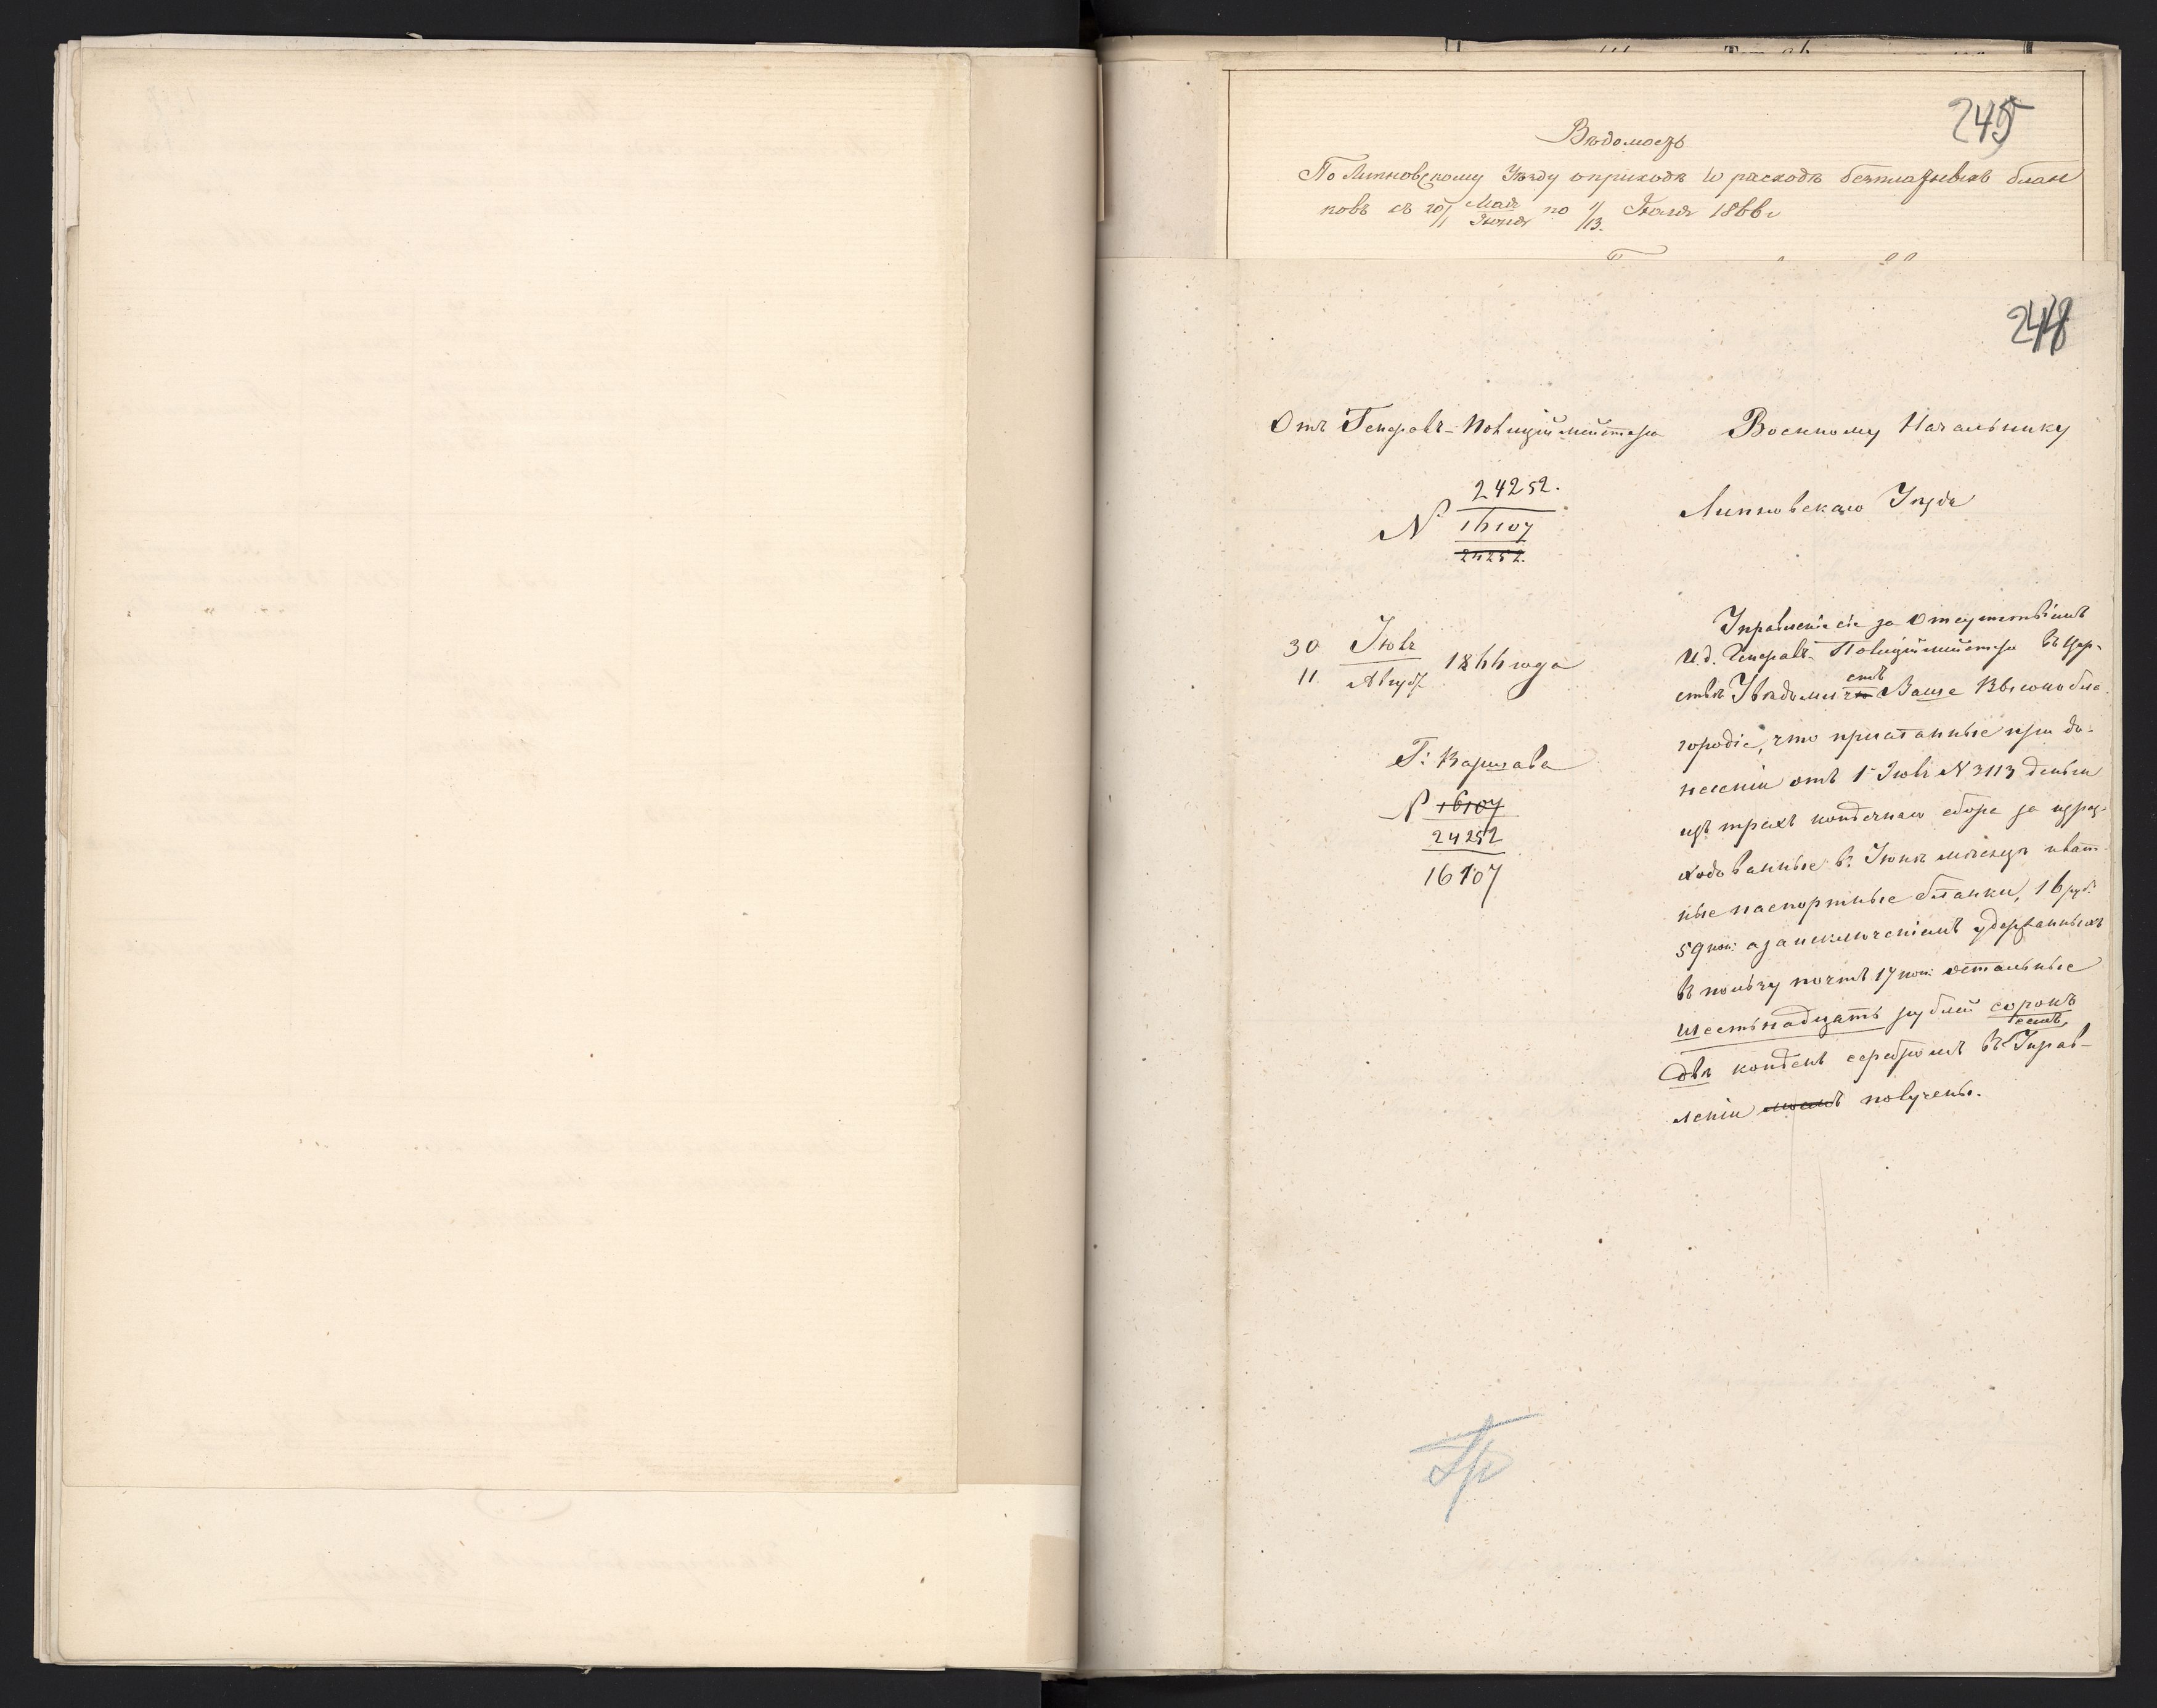 245
Вѣдомость
По Липновскому Уѣзду о приходѣ и расходѣ безплатныхъ блан
ковъ съ 20/1 Мая/Іюня по 1/13. Іюля 1866 г
248
Отъ Генералъ-Полиціймейстера
24252.
N 16107
24252.
30 Іюля
11 Август
1866 года
Г. Варшава
N 16107
24252
16107
Военному Начальнику
Липновскаго Уѣзда
Управленіе сіе за отсутствіемъ
И. д. Генералъ-Полиціймейстера въ Цар-
ствѣ Увѣдомляетъ Ваше Высокобла-
городіе, что присланные при до-
несеніи отъ 1 Іюля N 3113 деньги
изъ трехъ копѣечнаго сбора за израс-
ходованные въ Іюнѣ мѣсяцѣ платн-
ные паспортные бланки, 16 руб.
59 коп: а за исключеніемъ удержанныхъ
въ пользу почтъ 17 коп: остальные
шестьнадцать рублей сорокъ
двѣ копѣекъ серебромъ въ семъ Управ-
леніи моемъ получены.
Гр